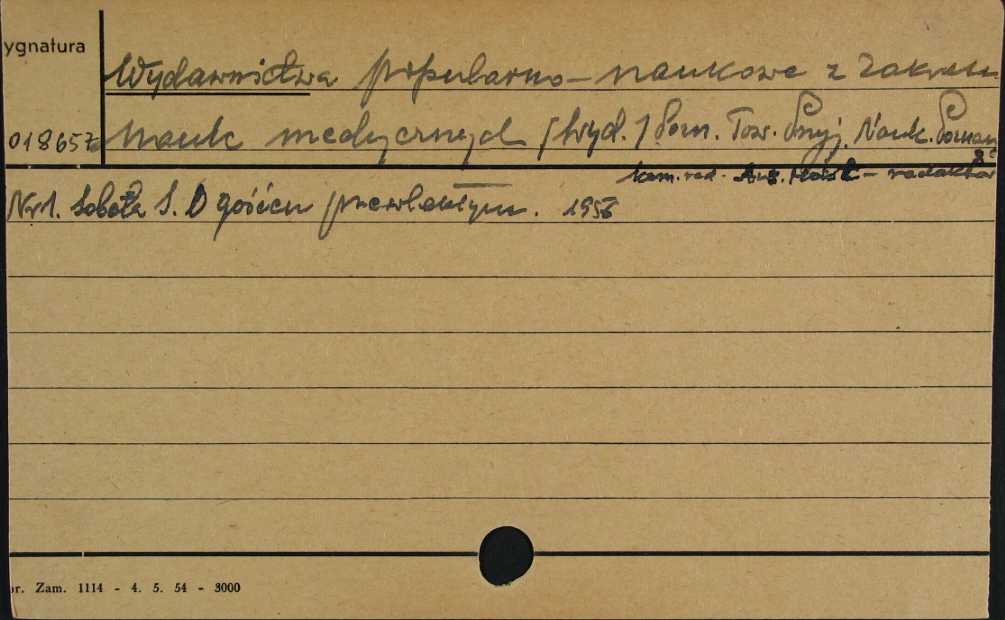 ygnatura
Wydawnictwa popularno-naukowe z zakresu
018657 nauk medycznych [wyd.] Pozn. Tow. Przyj. Nauk. Poznań
8°
kom. red. - redaktor
Nr 1. Sobota S. O gośćcu przewlekłym. 1956
or. Zam. 1114 - 4. 5. 54 - 3000